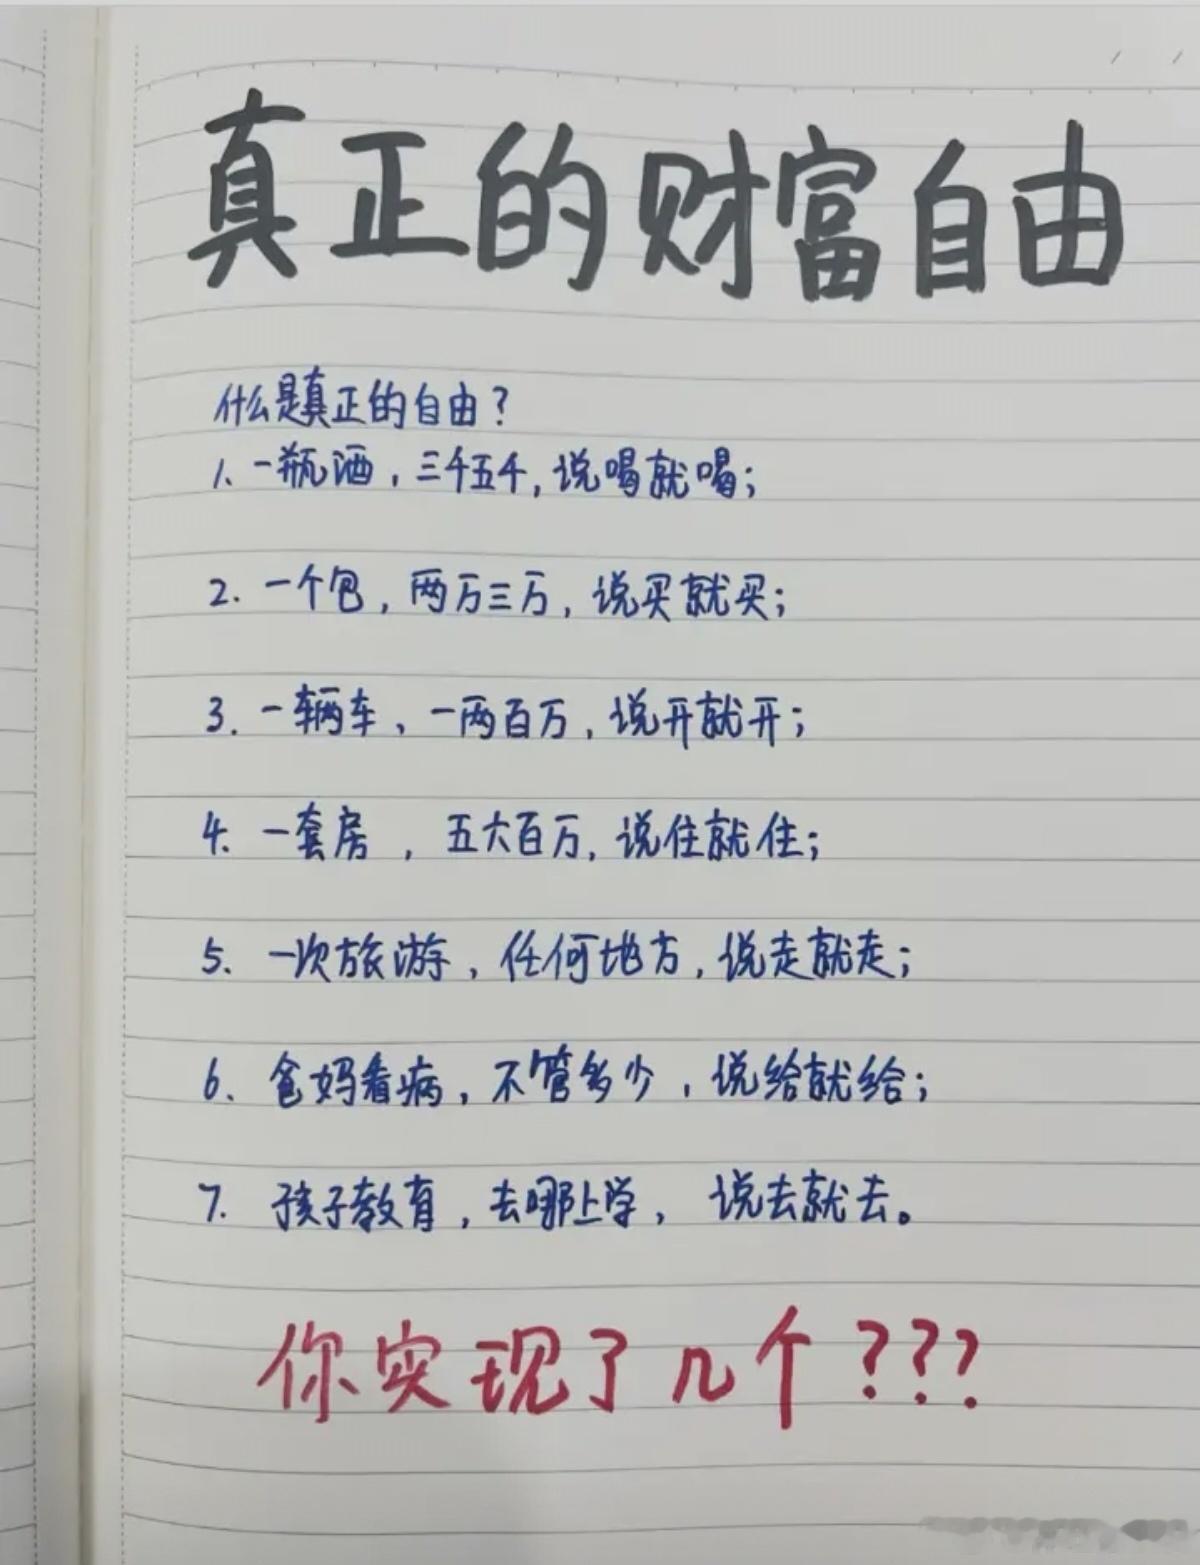 真正的财富自由
什么是真正的自由？
1. 一瓶酒，三千五千，说喝就喝；
2. 一个包，两万三万，说买就买；
3. 一辆车、一两百万，说开就开；
4. 一套房，五六百万，说住就住；
5. 一次旅游，任何地方，说走就走；
6. 爸妈看病，不管多少，说给就给；
7. 孩子教育，去哪上学，说去就去。
你实现了几个？？？